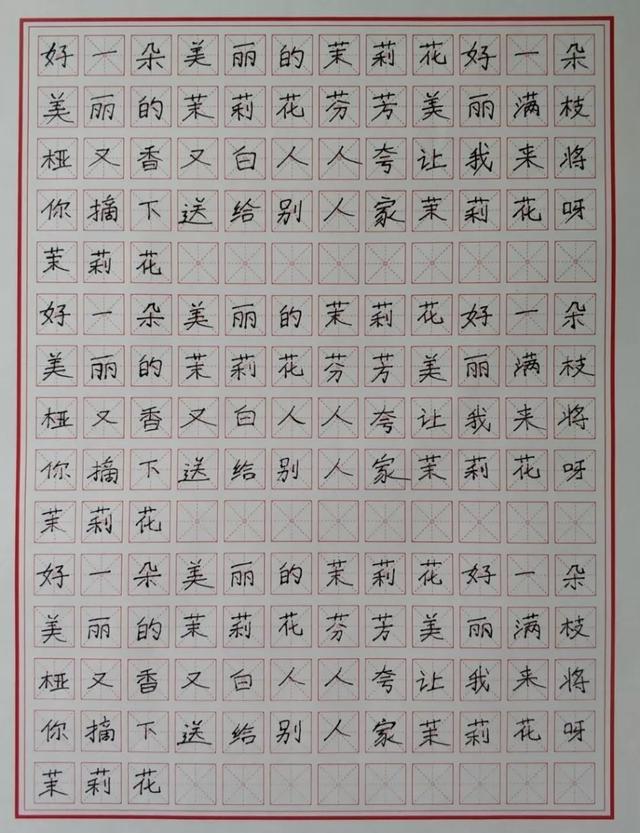 好一朵美丽的茉莉花好一朵
美丽的茉莉花芬芳美丽满枝
桠又香又白人人夸让我来将
你摘下送给别人家茉莉花呀
茉莉花
好一朵美丽的茉莉花好一朵
美丽的茉莉花芬芳美丽满枝
桠又香又白人人夸让我来将
你摘下送给别人家茉莉花呀
茉莉花
好一朵美丽的茉莉花好一朵
美丽的茉莉花芬芳美丽满枝
桠又香又白人人夸让我来将
你摘下送给别人家茉莉花呀
茉莉花